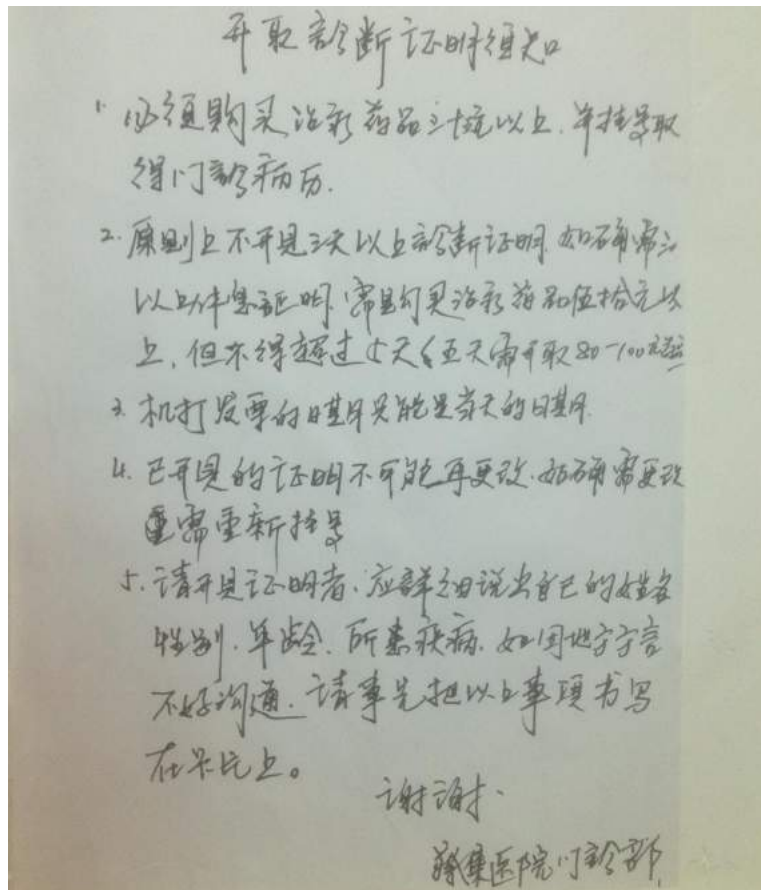 开取診断证明须知
1. 必须购买治疗药品三十元以上，并挂号取
得门診病历.
2. 原则上不开具三天以上診断证明.如确需三
以上休息证明.需购买治疗药品伍拾元以
上，但不得超过5天(五天需开取80-100元
3. 机打发票的日期只能是当天的日期.
4. 已开具的证明不可能再更改.如确需更改
需重新挂号
5. 请开具证明者.应詳细说出自己的姓名
性别.年龄.所患疾病.如因地方方言
不好沟通.请事先把以上事项书写
在卡片上。
谢谢.
集医院门診部